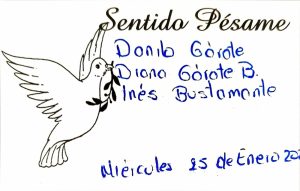 Sentido Pésame
Danilo Gárate
Diana Gárate B.
Inés Bustamante
Miércules 25 de Enero 202